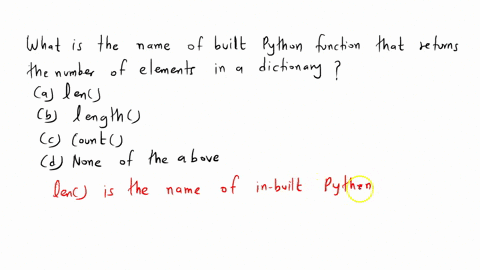 What is the name of built Python function that returns
the number of elements in a dictionary?
(a) len()
(b) length()
(c) Count()
(d) None of the above
len() is the name of in-built Python